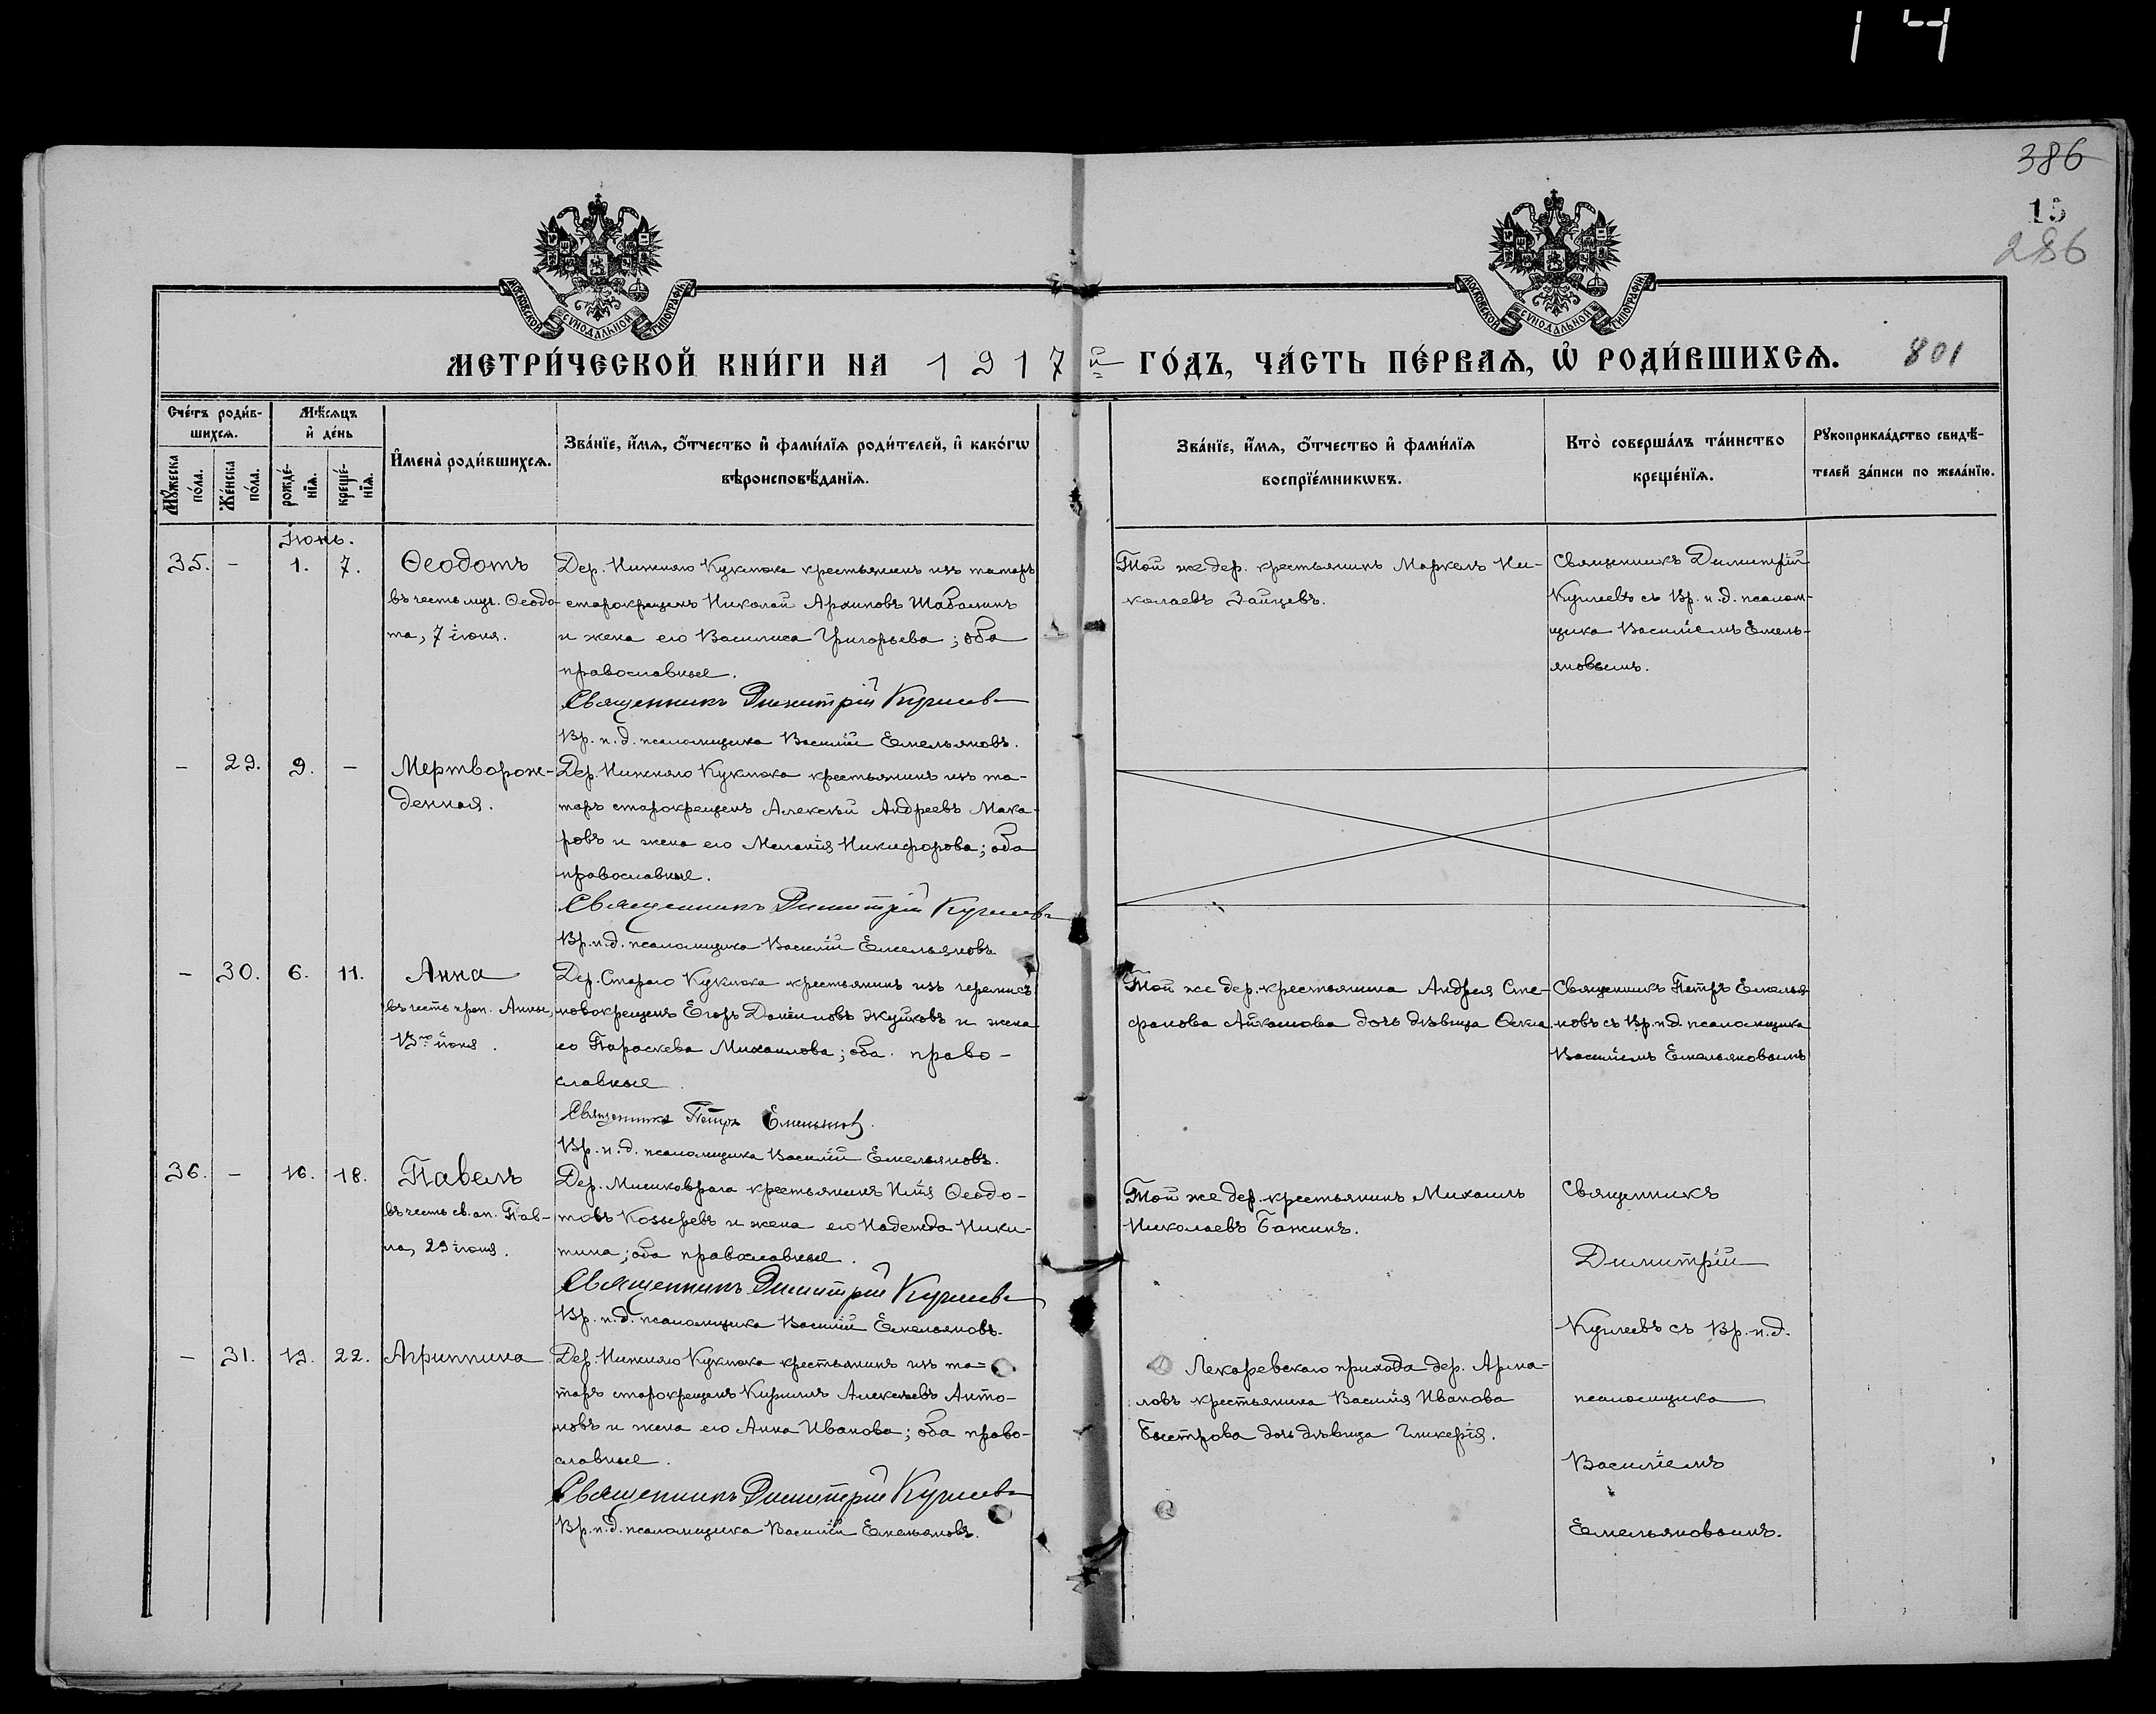 386
15
286
МОСКОВСКОЙ СУНОДАЛЬНОЙ ТИПОГРАФІИ
МОСКОВСКОЙ СУНОДАЛЬНОЙ ТИПОГРАФІИ
МЕТРИ́ЧЕСКОЙ КНИ́ГИ НА 1917й ГО́ДЪ, ЧА́СТЬ ПЕ́РВАѦ, Ѡ҆ РОДИ́ВШИХСѦ. 801
Сче́тъ роди́в-
шихсѧ.
Мꙋ́жеска по́ла.
Же́нска по́ла.
Мѣ́сѧцъ
и҆ де́нь
рожде́-
нїѧ.
креще́-
нїѧ.
И҆мена̀ роди́вшихсѧ.
Зва́нїе, и҆́мѧ, ѻ҆́тчество и҆ фами́лїѧ роди́телей, и҆ како́гѡ
вѣроисповѣ́данїѧ.
Зва́нїе, и҆́мѧ, ѻ҆́тчество и҆ фами́лїѧ
воспрїе́мникѡвъ.
Кто̀ соверша́лъ та́инство
креще́нїѧ.
Рꙋкоприкла́дство свидѣ́-
телей за́писи по жела́нїю.
Іюнь.
35. - 1. 7. Ѳеодотъ
въ честь муч. Ѳеодо-
та, 7 іюня.
Дер. Нижняго Кукмока крестьянинъ изъ татаръ
старокрещенъ Николай Архиповъ Шабалинъ
и жена его Василиса Григорьева; оба
православные.
Священникъ Димитрій Кузмеев
Вр. и. д. псаломщика Василій Емельяновъ.
Той же дер. крестьянинъ Маркелъ Ни-
колаевъ Зайцевъ.
Священникъ Димитрій
съ Вр. и. д. псалом-
щика Василіемъ Емель-
яновымъ.
- 29. 9. - Мертворож-
денная.
Дер. Нижняго Кукмока крестьянинъ изъ та-
таръ старокрещенъ Алексѣй Андреевъ Мака-
ровъ и жена его Меланія Никифорова; оба
православные.
Священникъ Димитрій
Вр. и. д. псаломщика Василій Емельяновъ
- 30. 6. 11. Анна
въ честь преп. Анны,
13го іюня.
Дер. Стараго Кукмока крестьянинъ изъ черемисъ
новокрещенъ Егоръ Даніиловъ Жуйковъ и жена
его Параскева Михаилова; оба право-
славные.
Священникъ Петръ Емельянов.
Вр. и. д. псаломщика Василій Емельяновъ.
Той же дер. крестьянина Андрея Сте-
фанова дочь дѣвица Ѳекла.
Священникъ Петръ Емелья-
новъ съ Вр. и. д. псаломщика
Василіемъ Емельяновымъ
36. - 16. 18. Павелъ
въ честь св. ап. Пав-
ла, 29 іюня.
Дер. крестьянинъ Илія Ѳеодо-
товъ Козыревъ и жена его Надежда Ники-
тина; оба православные.
Священникъ Димитрій
Вр. и. д. псаломщика Василій Емельяновъ.
Той же дер. крестьянинъ Михаилъ
Николаевъ Бажинъ.
Священникъ
Димитрій
съ Вр. и. д.
псаломщика
Василіемъ
Емельяновымъ.
- 31. 19. 22. Агриппина
Дер. Нижняго Кукмока крестьянинъ изъ та-
таръ старокрещенъ Кириллъ Алексѣевъ Анто-
новъ и жена его Анна Иванова; оба право-
славные.
Священникъ Димитрій
Вр. и. д. псаломщика Василій Емельяновъ.
Лекаревскаго прихода дер. Арма-
ловъ крестьянина Василія Иванова
Быстрова дочь дѣвица Гликерія.